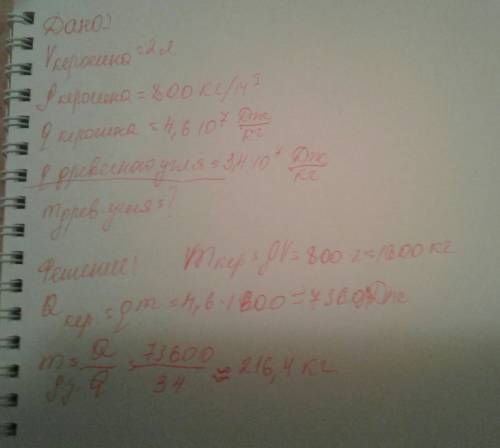 Дано:
Vкеросина = 2 л
ρкеросина = 800 кг/м³
q керосина = 4,6 10⁷ Дж/кг
q древесного угля = 3,4 10⁷ Дж/кг
mдрев. угля = ?
Решение: mкер = ρV = 800·2 = 1600 кг
Qкер. = qm = 4,6·1600 = 7360 Дж
m = Q/q = 73600/34 ≈ 216,4 кг